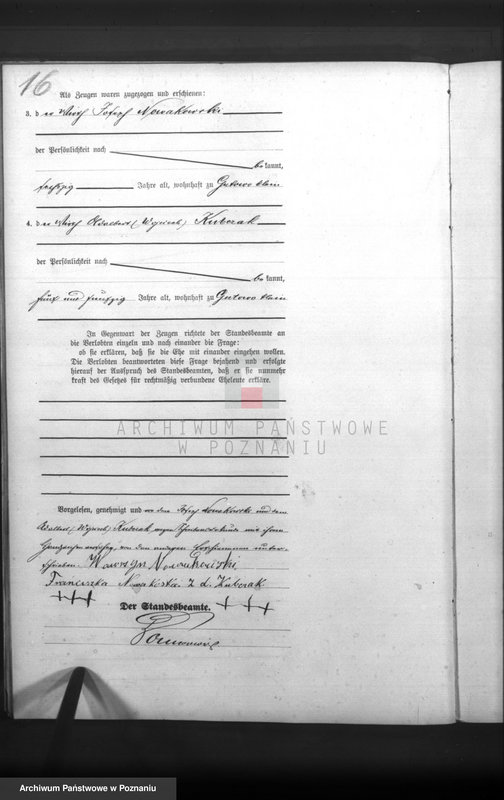 16
Als Zeugen waren zugezogen und erschienen:
3. der Wirth Joseph Nowakowski
der Persönlichkeit nach
bekannt,
Jahre alt, wohnhaft zu Gutowo klein
4. der Wirth Adalbert (Wojciech) Kubczak
der Persönlichkeit nach
bekannt,
fünf und fünfzig Jahre alt, wohnhaft zu Gutowo klein
In Gegenwart der Zeugen richtete der Standesbeamte an
die Verlobten einzeln und nach einander die Frage:
ob sie erklären, daß sie die Ehe mit einander eingehen wollen.
Die Verlobten beantworteten diese Frage bejahend und erfolgte
hierauf der Ausspruch des Standesbeamten, daß er sie nunmehr
kraft des Gesetzes für rechtmäßig verbundene Eheleute erkläre.
ARCHIWUM PAŃSTWOWE
W POZNANIU
Vorgelesen, genehmigt und von dem Joseph Nowakowski und dem
Adalbert (Wojciech) Kubczak wegen Schreibensunkunde mit ihren
Handzeichen versehen, von den anderen Erschienenen unter-
schrieben. Wawrzyn Nowakowski,
Franciszka Nowakoska z d. Kubczak
+++
Der Standesbeamte. + + +
Archiwum Państwowe w Poznaniu